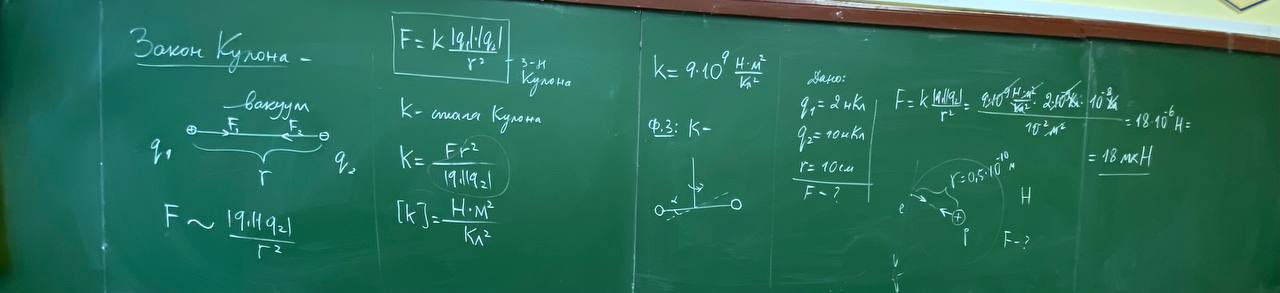 Закон Кулона -
вакуум
F₁ F₂
q₁ r q₂
F ~ |q₁||q₂| / r²
F = k |q₁|·|q₂| / r² - з-н Кулона
k - стала Кулона
k = Fr² / |q₁||q₂|
[k] = Н·м² / Кл²
k = 9·10⁹ Н·м² / Кл²
Ф.З: K -
α
Дано:
q₁ = 2 нКл
q₂ = 10 нКл
r = 10 см
F - ?
F = k |q₁||q₂| / r² =
10⁻² м²
= 18·10⁻⁶ Н =
= 18 мкН
r = 0,5·10⁻¹⁰ м
e
H
F - ?